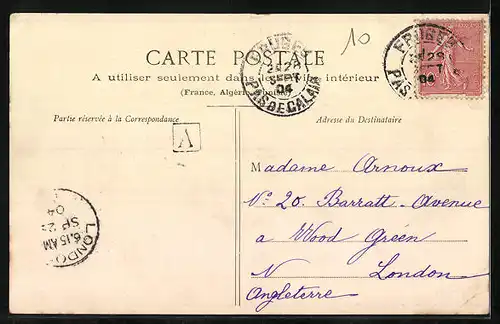 10
CARTE POSTALE
A utiliser seulement dans le service intérieur
(France, Algérie, Tunisie)
FRUGES
2E
28
SEPT
04
PAS DE CALAIS
FRUGES
28
04
PAS
Partie réservée à la Correspondance
Adresse du Destinataire
A
Madame Arnoux
No 20. Barratt-Avenue
a Wood Green
N London
Angleterre
LONDON
6.15 AM
SP 2
04